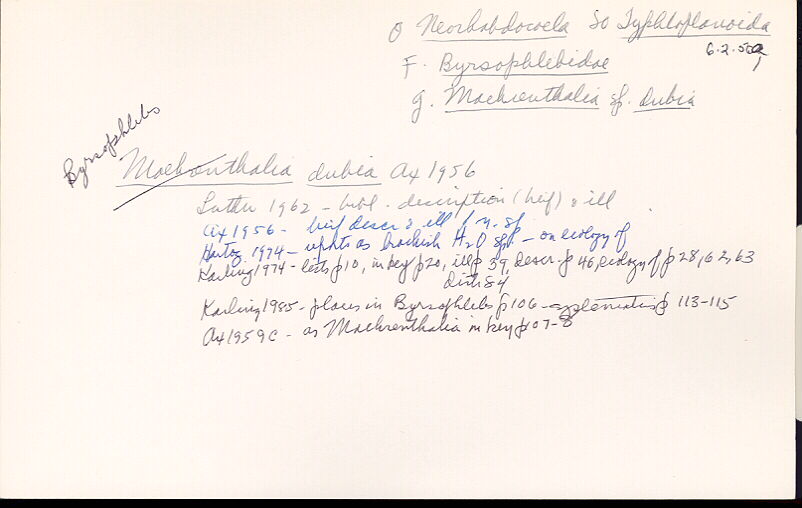 O Neorhabdocoela SO Typhloplanoida
6.2.
F. Byrsophlebidae
g. Maehrenthalia sp. dubia
Byrsophlebs
Maehrenthalia dubia Ax 1956
Luther 1962 - bibl. description (brief) & ill
Ax 1956 - brief descr & ill / n. sp.
Hartog 1974 - reports as brackish H2O spp - on ecology of
Karling 1974 - lists p10, in key p20, ill p 39, descr p 46, ecology of p 28, 62, 63
distr 84
Karling 1985 - places in Byrsophlebs p 106 - systematics p 113-115
Ax 1959c - as Maehrenthalia in key p107-8